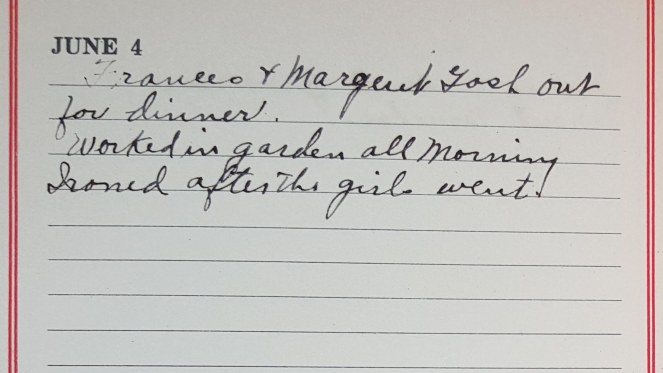 JUNE 4
Frances & Margerit Gosh out
for dinner.
Worked in garden all Morning
Ironed after the girls went.